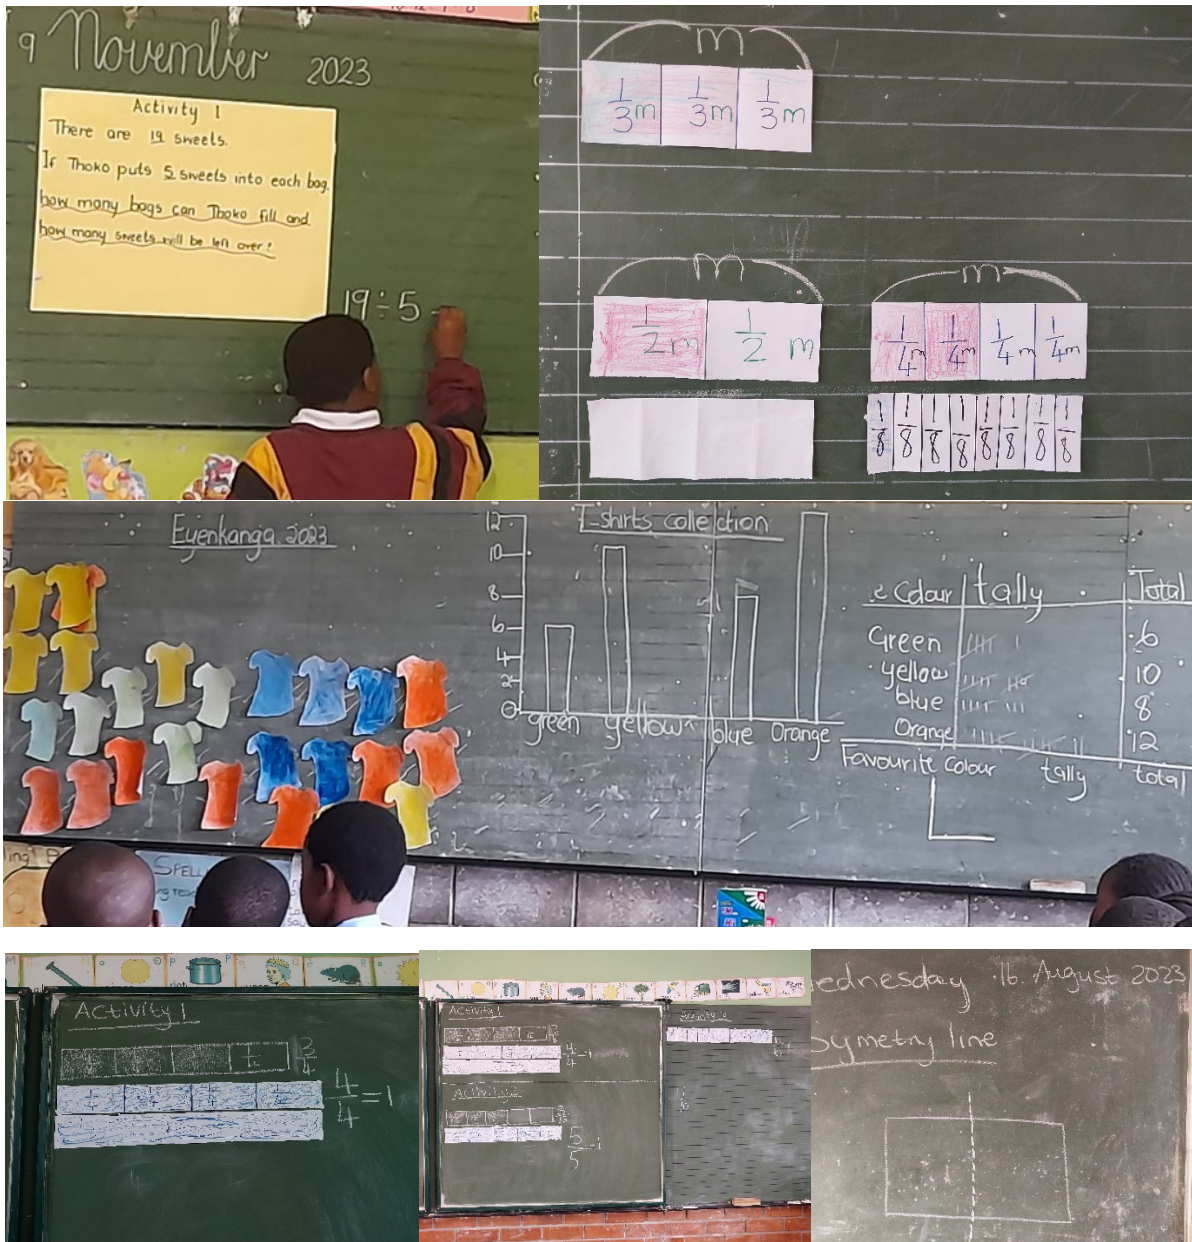 9 November 2023
Activity 1
There are 19 sweets.
If Thoko puts 5 sweets into each bag,
how many bags can Thoko fill and
how many sweets will be left over?
19 ÷ 5
m
1/3 m 1/3 m 1/3 m
m m
1/2 m 1/2 m 1/4 m 1/4 m 1/4 m 1/4 m
1/8 1/8 1/8 1/8 1/8 1/8 1/8 1/8
Eyenkanga 2023
T-shirts collection
12
10
8
6
4
2
0
green yellow blue Orange
Colour tally Total
Green 6
yellow 10
blue 8
Orange 12
Favourite Colour tally total
SPELL
Activity 1
1/4 3/4
1/4 1/4 1/4 1/4 4/4 = 1
Activity 1
4/4 = 1
Activity 2
5/5 = 1
Wednesday 16 August 2023
Symetry line